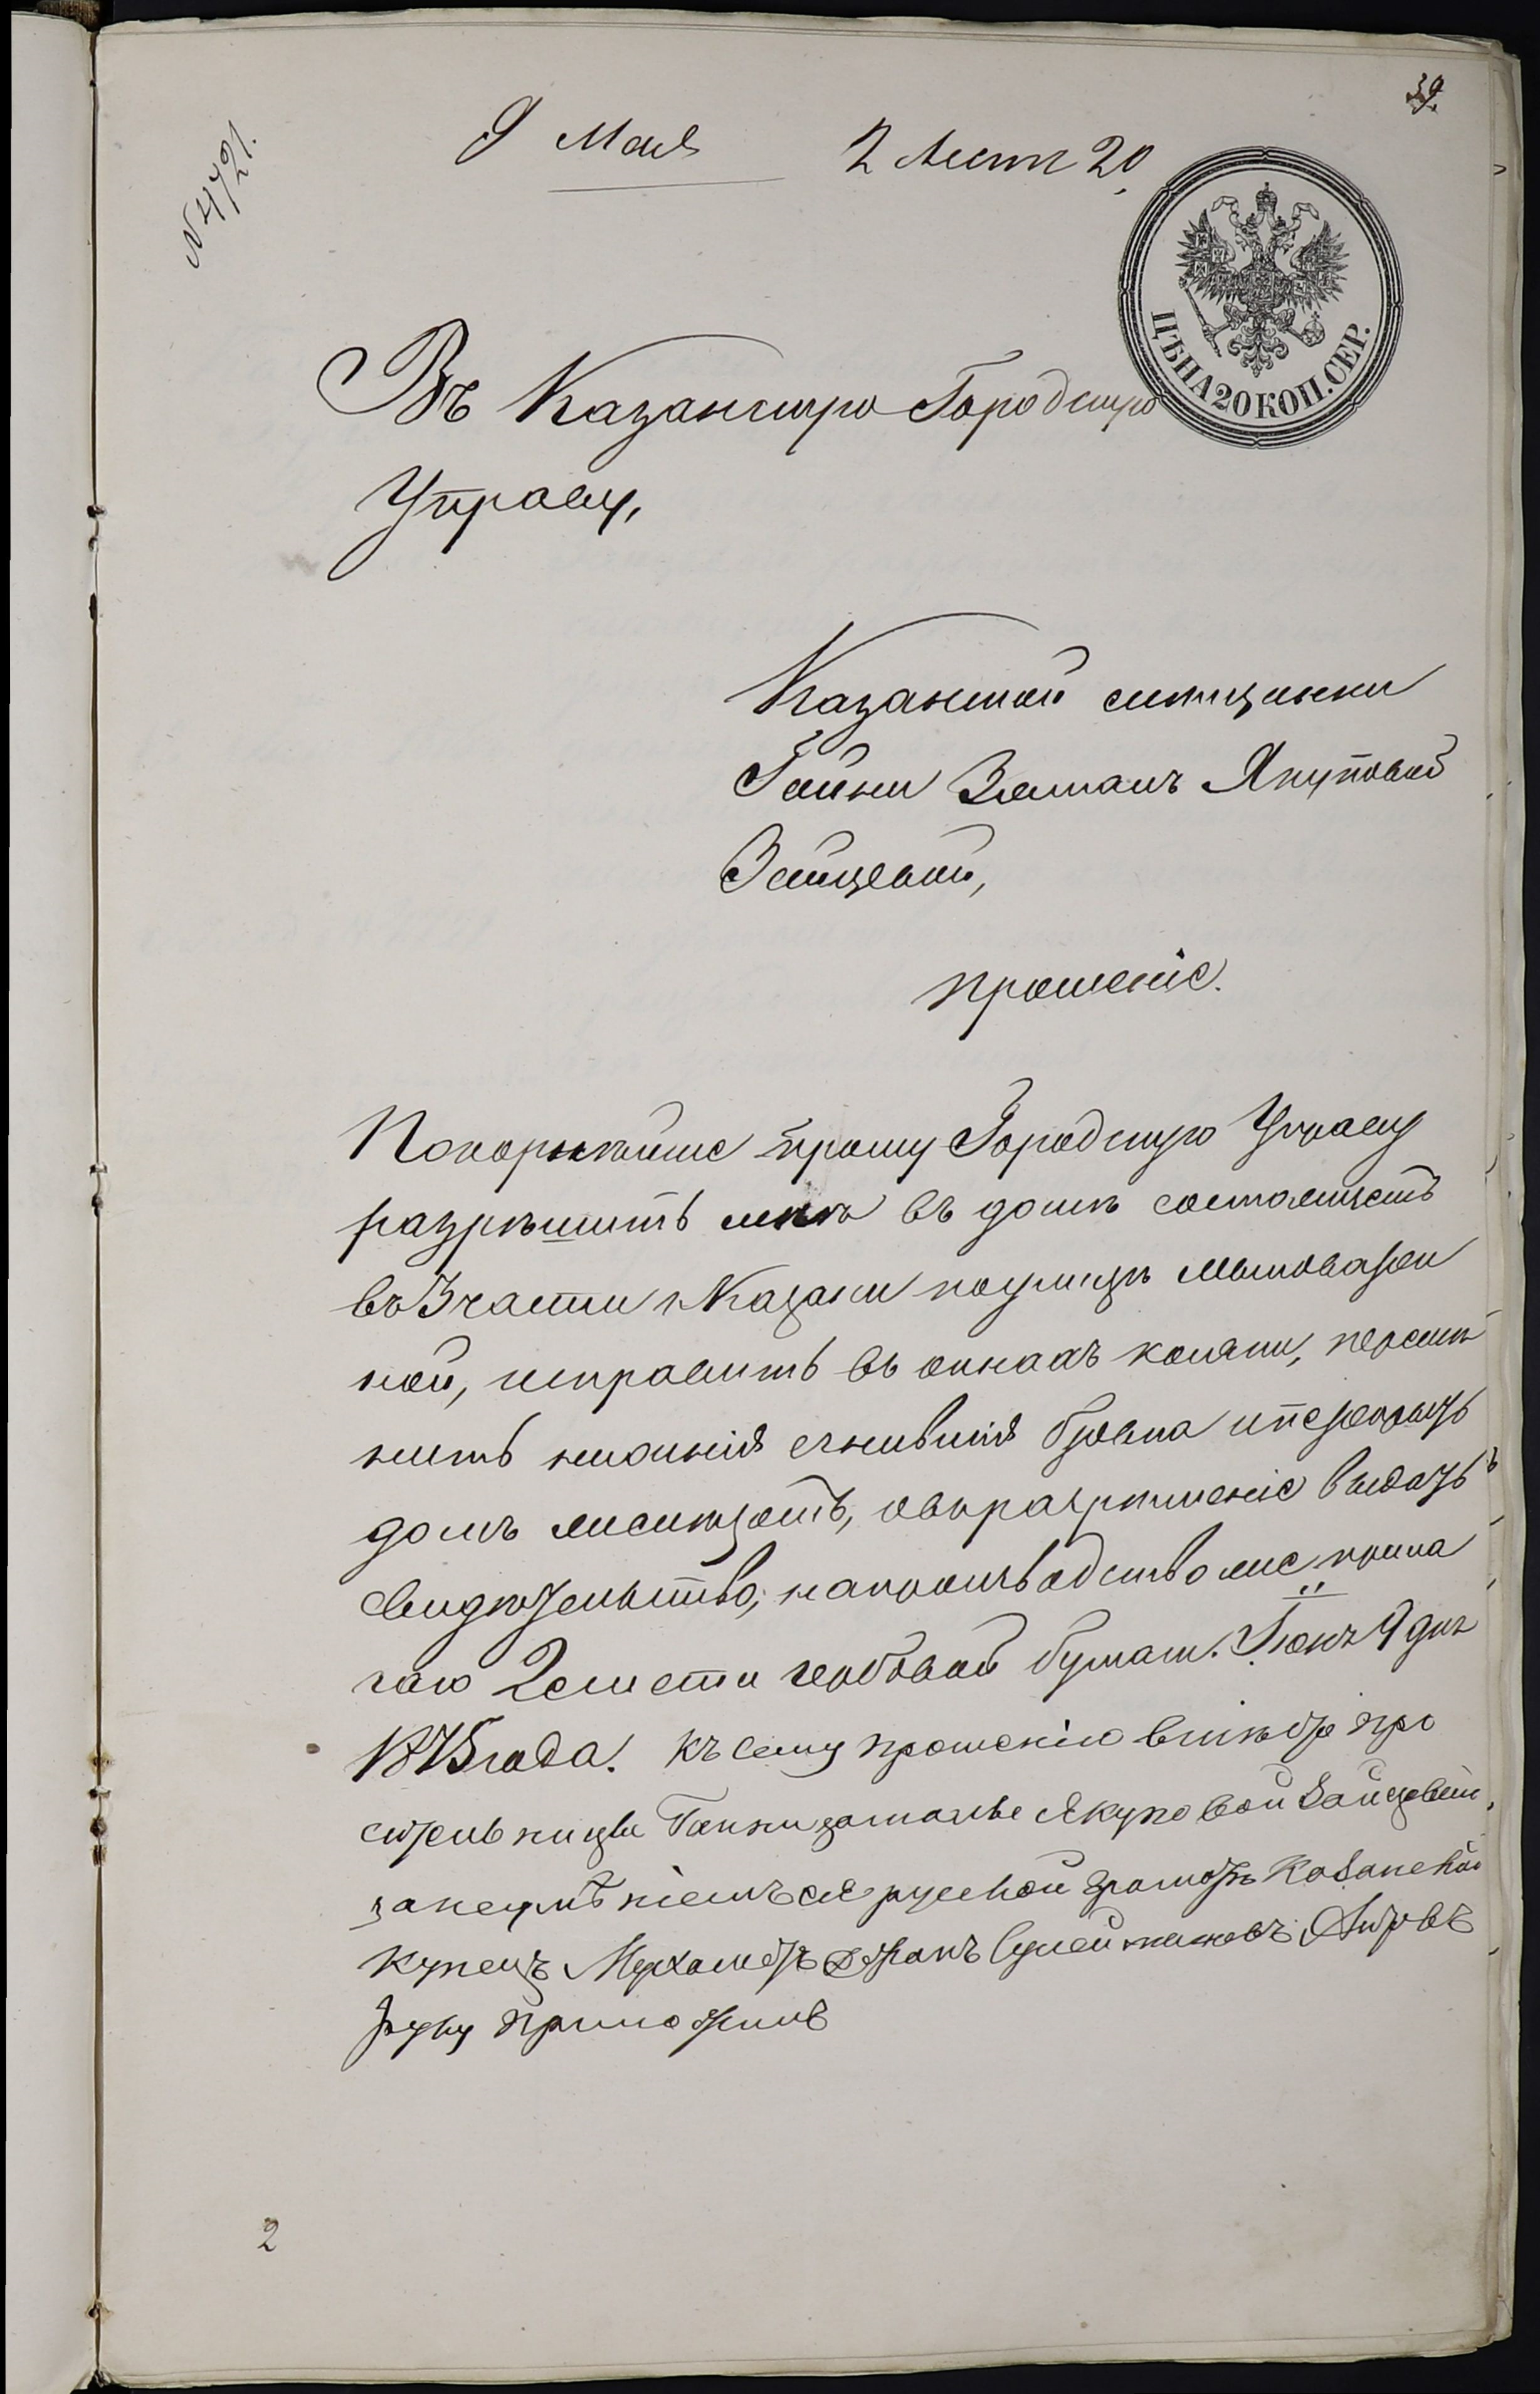 39.
9 Мая 2 листа 20
№ 4721.
ЦѢНА 20 КОП. СЕР.
Въ Казанскую Городскую
Управу,
Казанской мѣщанки
Гайни Замалъ Якуповой
Зайцевой,
прошеніе.
Покорнѣйше прошу Городскую Управу
разрѣшить мнѣ въ домѣ состоящемъ
въ 3 части г. Казани по улицѣ Мыловарен
ной, исправить въ окнахъ косяки, перемѣ
нить нижнія сгнившія бревна и перекрыть
домъ имеющемъ, о въ разрѣшеніе выдать
свидѣтельство, на производство мое прила
гаю 2 листа гербовой бумаги. Іюнь 9 дня
1875 года. Къ сему прошенію вмѣсто про
сительницы Гайнизамалъ Якуповой Зайцевой,
за неумѣніемъ ея русской грамотѣ Казанской
купецъ Мухаметъ Джанъ Сулеймановъ Аитовъ
руку приложилъ
2